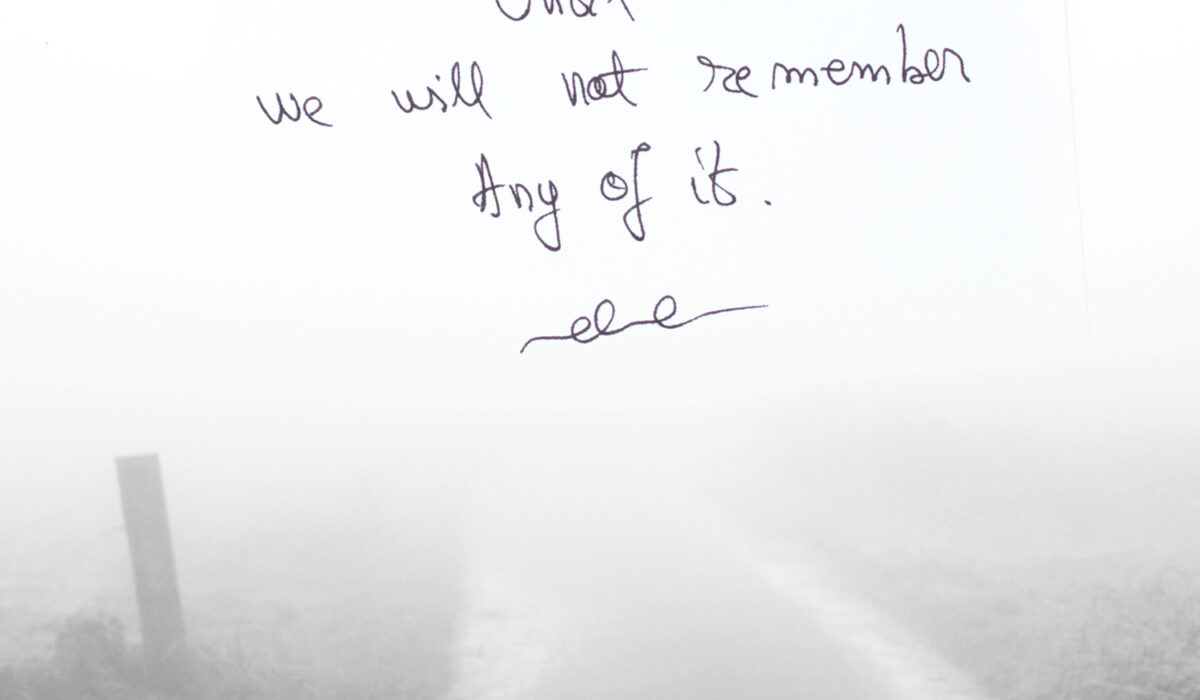 we will not remember
Any of it.